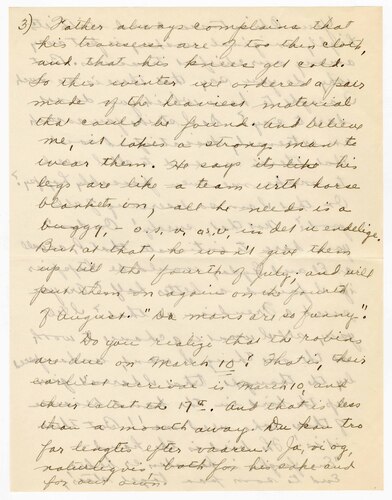 3) Father always complains that
his trousers are of too thin cloth,
and that his knees get cold.
So this winter we ordered a pair
made of the heaviest material
that could be found. And believe
me, it takes a strong man to
wear them. He says its like his
legs are like a team with horse
blankets on; all he needs is a
buggy, - o.s.v, o.s.v, in det uendelige.
But at that, he won't give them
up till the fourth of July; and will
put them on again on the fourth
of August. "De mans is so funny".
Do you realize that the robins
are due on March 10? That is, their
earliest arrival is March 10, and
their latest the 17th. And that is less
than a month away. Du kan tro
far lengter efter vaaren! Ja, vi og,
naturligvis both for his sake and
for our own.